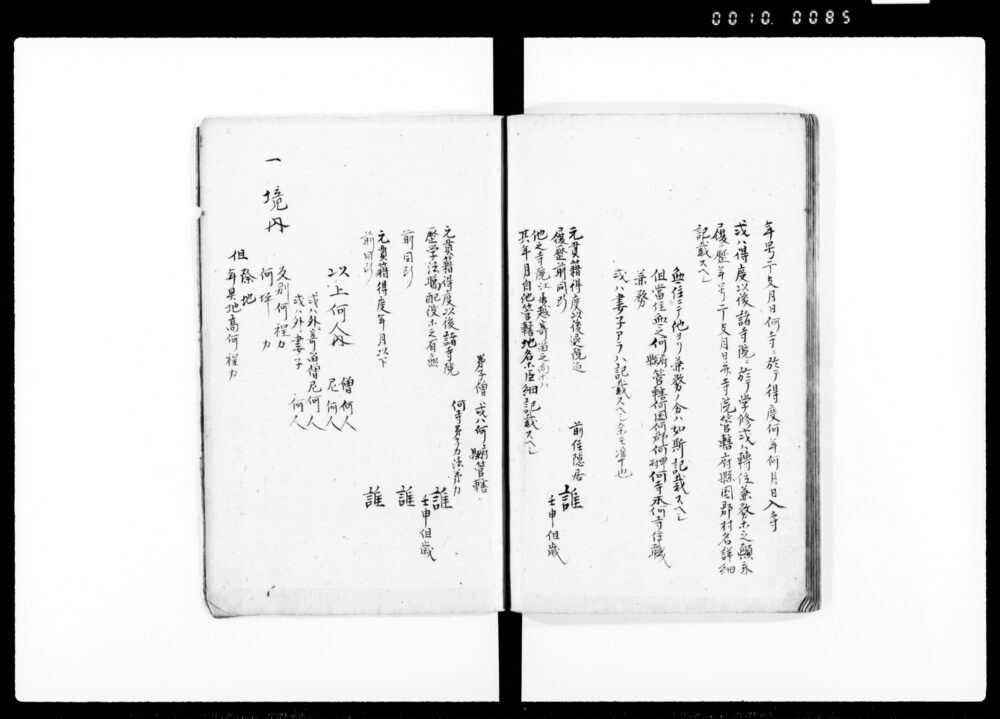 0010.0085
年号干支月日何寺ニ於テ得度何年何月日入寺
或ハ得度以後諸寺院ニ於テ学修或ハ轉住兼務ホ之顛末
履歴年号干支月日并寺院管轄府縣国郡村名詳細
記載スヘシ
無住ニテ他ヨリ兼務ノ分ハ如斯記載スヘシ
但當住無之何縣管轄何国何郡何村何寺永何寺住職
兼務
或ハ妻子アラハ記載スヘシ余モ准之也
前住隠居
誰
壬申但歳
元貫籍得度以後退院迠
履歴前同断
他之寺院江
其年月自他管轄地名ホ巨細記載スヘシ
弟子僧 或ハ何縣管轄
何寺弟子
誰
壬申但歳
元貫籍得度以後諸寺院
歴学法臈配役ホ之有無
前同断
誰
元貫籍得度年月以下
前同断
誰
以上何人内
僧何人
尼何人
或ハ外ニ寄留僧尼何人
或ハ外ニ妻子 何人
一 境内
反別何程カ
何坪カ
但 除地カ
年貢地高何程カ